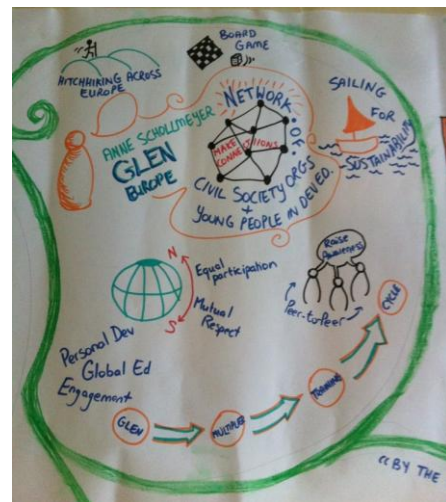 HITCHHIKING ACROSS
EUROPE
BOARD
GAME
SAILING
FOR
SUSTAINABILITY
ANNE SCHOLLMEYER
GLEN
EUROPE
NETWORK
OF
MAKE
CONNECTIONS
CIVIL SOCIETY ORGS
+
YOUNG PEOPLE IN DEV ED.
N
S
Equal participation
Mutual
Respect
Raise
Awareness
Peer-to-Peer
Personal Dev
Global Ed
Engagement
GLEN
MULTIPLIER
TRAINING
CYCLE
"BY THE